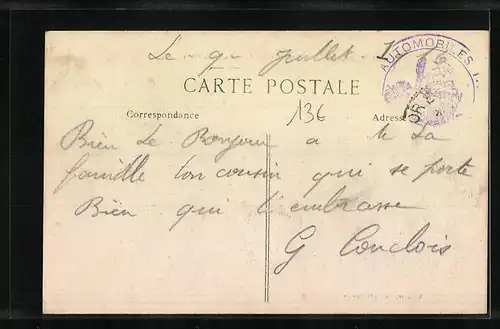 Le 9 Juillet
AUTOMOBILES
CARTE POSTALE
136
Correspondance
Adresse
Bien Le Bonjour a te La
famille ton cousin qui se porte
Bien qui t'embrasse
G